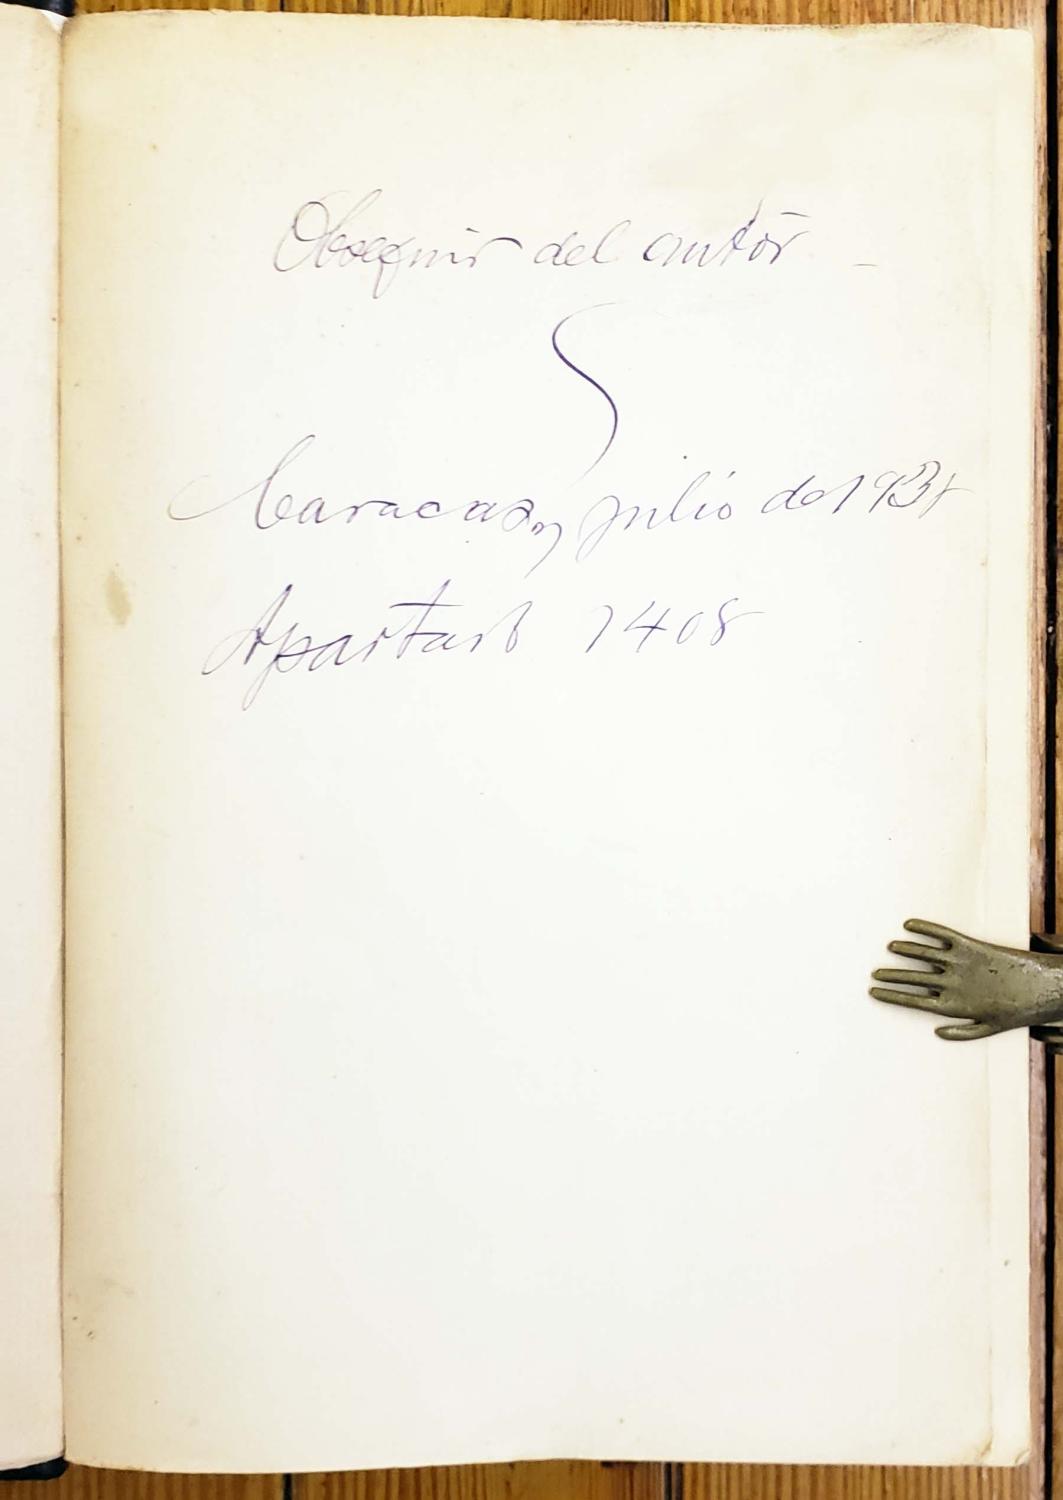 Obsequio del autor -
Caracas, julio de
Apartado 1408